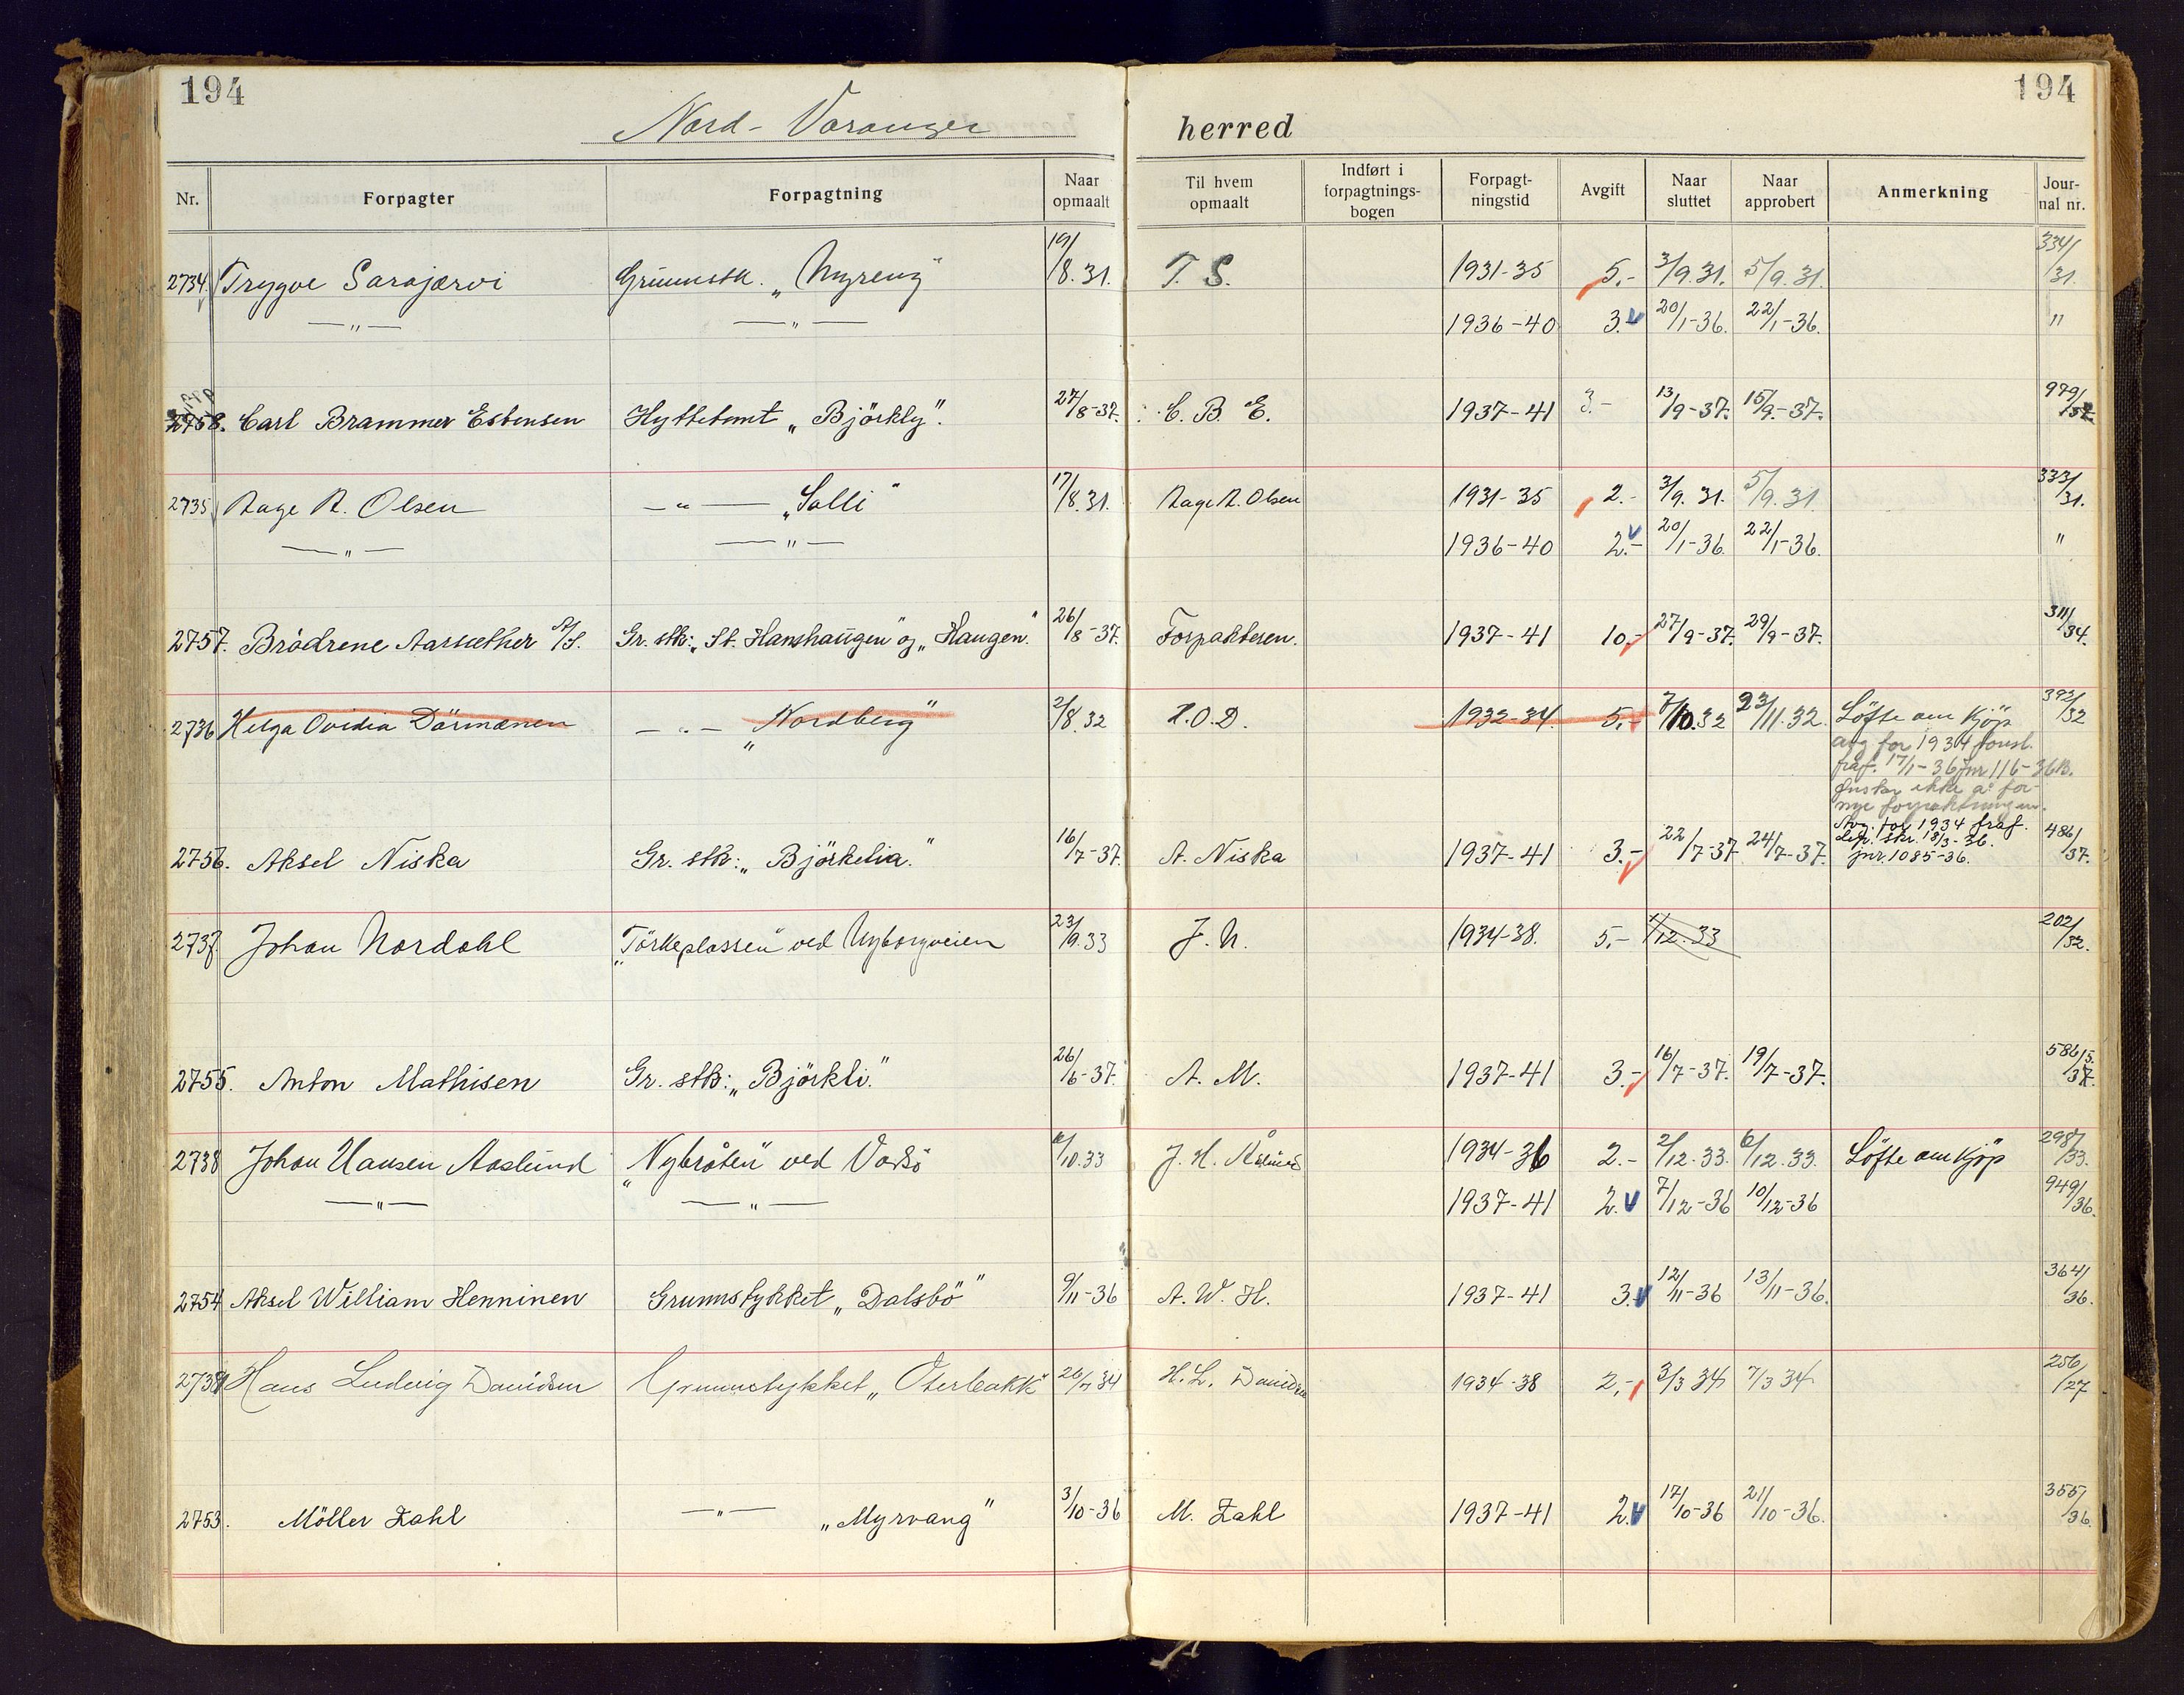 194
194
Nord-Varanger herred
Nr. Forpagter Forpagtning Naar opmaalt Til hvem opmaalt Indført i forpagtnings-bogen Forpagt-ningstid Avgift Naar sluttet Naar approbert Anmerkning Jour-nal nr.
2734. Trygve Sarajærvi Grunnstk. „Myreng" 19/8.31. T. S. 1931-35 5.- 3/9.31. 5/9.31. 334/31.
—„— —„— 1936-40 3.- 20/1-36. 22/1-36. "
2758. Carl Brammer Esbensen Hyttetomt „Björkly". 27/8-37. C. B. E. 1937-41 3.- 13/9-37. 15/9-37. 979/
2735 Aage R. Olsen —„— „Solli" 17/8.31. Aage R. Olsen 1931-35 2.- 3/9.31. 5/9.31. 333/31.
—„— —„— 1936-40 2.- 20/1-36. 22/1-36. "
2757. Brödrene Aarsæther A/S. Gr. stk: „St. Hanshaugen" og „Haugen." 26/8-37. Forpakteren. 1937-41 10.- 27/9-37. 29/9-37. 311/34.
2736 Helga Ovidia Därmænen —„— „Nordberg" 2/8.32 H.O.D. 1932-34. 5.- 7/10.32 23/11.32. Löfte om Kjöp 392/32
avg for 1934
fraf. 17/1-36 jnr 116-36 B.
Ønsker ikke å for-
nye forpaktningen.
Avg. for 1934 fraf.
dep. skr. 18/3-36.
jnr. 1085-36.
2756. Aksel Niska Gr. stk: „Björkelia." 16/7-37. A. Niska 1937-41 3.- 22/7-37 24/7-37. 486/37.
2737 Johan Nordahl „Törkeplassen" ved Nyborgveien 23/9.33 J. N. 1934-38. 5.- 1/12.33 202/32.
2755. Anton Mathisen Gr. stk: „Björkli." 26/6-37. A. M. 1937-41 3.- 16/7-37. 19/7-37. 586/37.
2738 Johan Hansen Aaslund „Nybråten" ved Vadsö /10.33 J. H. Åslund 1934-36 2.- 2/12.33. 6/12.33. Löfte om Kjöp 298/33.
—„— —„— 1937-41 2. 7/12-36 10/12-36 949/36.
2754 Aksel William Henninen Grunnstykket „Dalsbö" 9/11-36 A. W. H. 1937-41 3. 12/11-36 13/11-36. 364/36.
2739 Hans Ludvig Davidsen Grunnstykket „Oterbakk" 34 H. L. Davidsen 1934-38 2,- 3/3 34 7/3 34 256/27
2753. Möller Zahl —„— „Myrvang" 3/10-36 M. Zahl 1937-41 2. 17/10-36 21/10-36. 355/36.